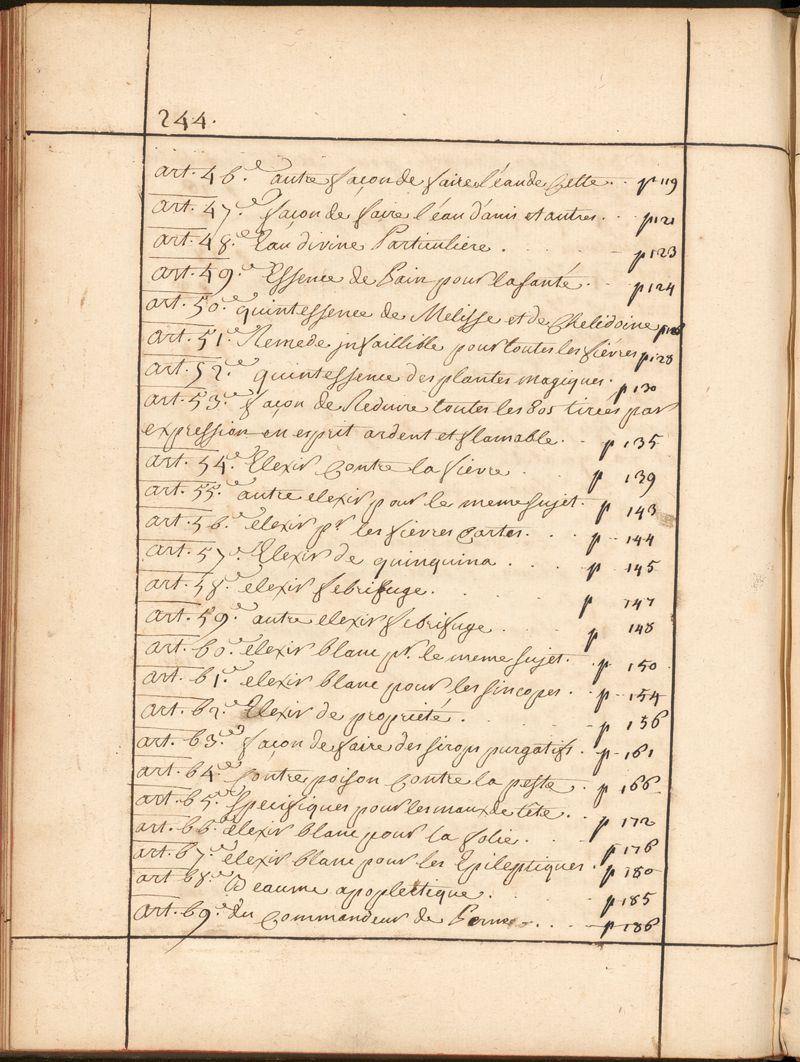 244.
art. 46.e autre façon de faire l'éau de Cette.. p 119
art. 47.e façon de faire l'éau d'anis et autres... p 121
art. 48.e Eau divine Particuliere.... p 123
art. 49.e Essence de Pain pour la santé.. p 124
art. 50.e quintessence de Melisse et de Chelidoine p 126
art. 51.e Remede jnfaillible pour toutes les fiévres p. 128
art. 52.e quintessence des plantes magiques. p 130
art. 53.e façon de Reduire toutes les Eos tirées par
expression en esprit ardent et flamable.. p 135
art. 54.e Elexir Contre la fiévre. p 139
art. 55.e autre elexir pour le meme sujet. p 143
art. 56.e elexir pr. les fiévres Cartes... p 144
art. 57.e Elexir de quinquina.... p 145
art. 58.e elexir febrifuge. p 147
art. 59.e autre elexir febrifuge.... p 148
art. 60.e elexir blanc pr. le meme sujet. p 150
art. 61.e elexir blanc pour les sincopes. p 154
art. 62.e Elexir de proprieté.... p 156
art. 63.e façon de faire des sirops purgatifs. p 161
art. 64.e Contre poison Contre la peste. p 166
art. 65.e Specifiques pour les maux de tête.. p 172
art. 66.e elexir blanc pour la folie.. p 176
art. 67.e elexir blanc pour les Epileptiques. p 180
art 68.e Beaume apoplectique.... p 185
art. 69.e du Commandeur de Perne.... p 186